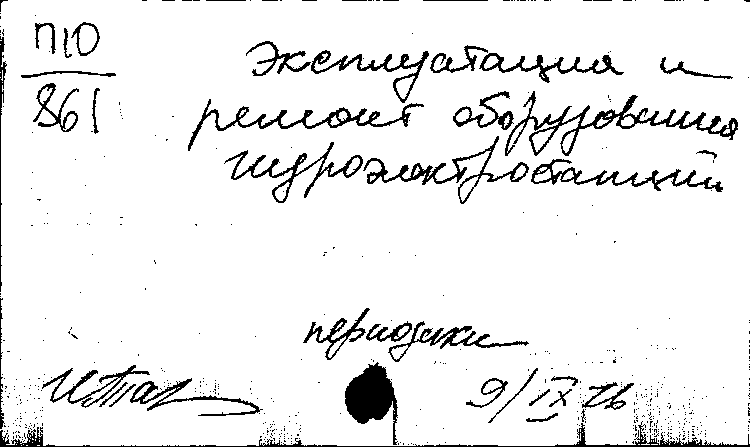 П10
861
Эксплуатация и
ремонт оборудования
гидроэлектростанций
периодики
9/IX 76